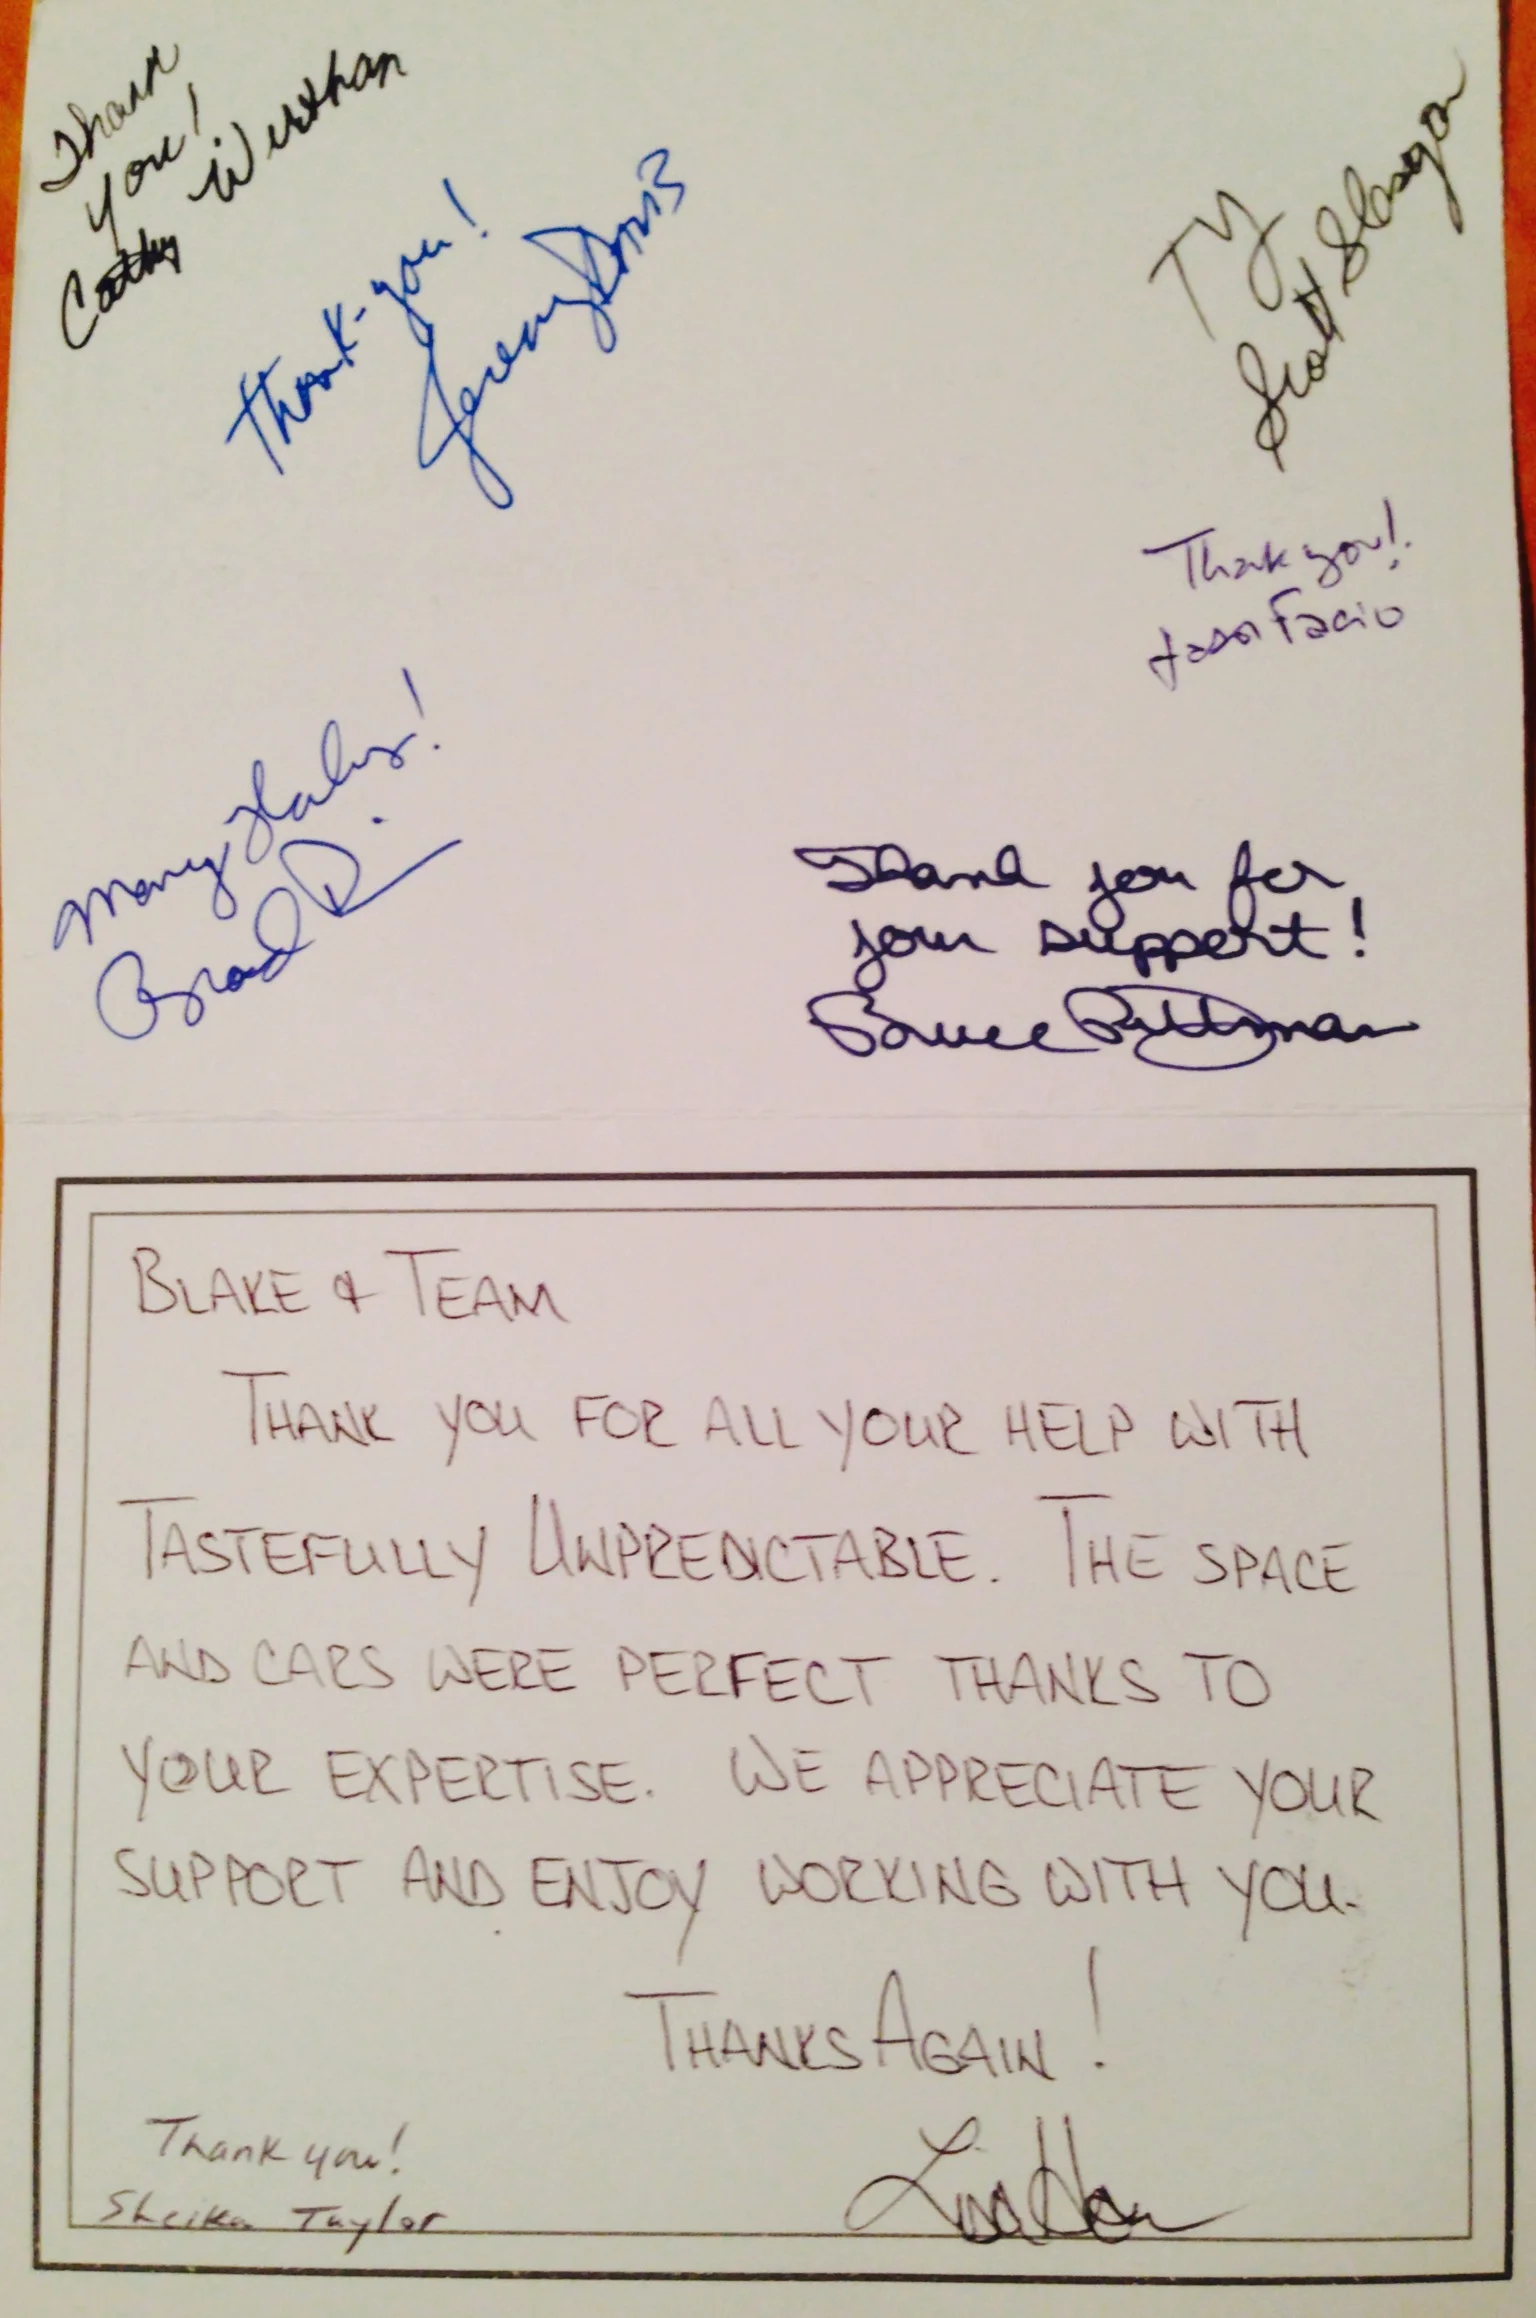 Thank
you!
Cathy Wirthan
Thank-you!
Jeremy
TY
Scott
Thank you!
Jason Facio
Many Thanks!
Brad R
Thank you for
your support!
Bruce Pittman
BLAKE & TEAM
THANK YOU FOR ALL YOUR HELP WITH
TASTEFULLY UNPREDICTABLE. THE SPACE
AND CARS WERE PERFECT THANKS TO
YOUR EXPERTISE. WE APPRECIATE YOUR
SUPPORT AND ENJOY WORKING WITH YOU.
THANKS AGAIN!
Lisa
Thank you!
Sheika Taylor